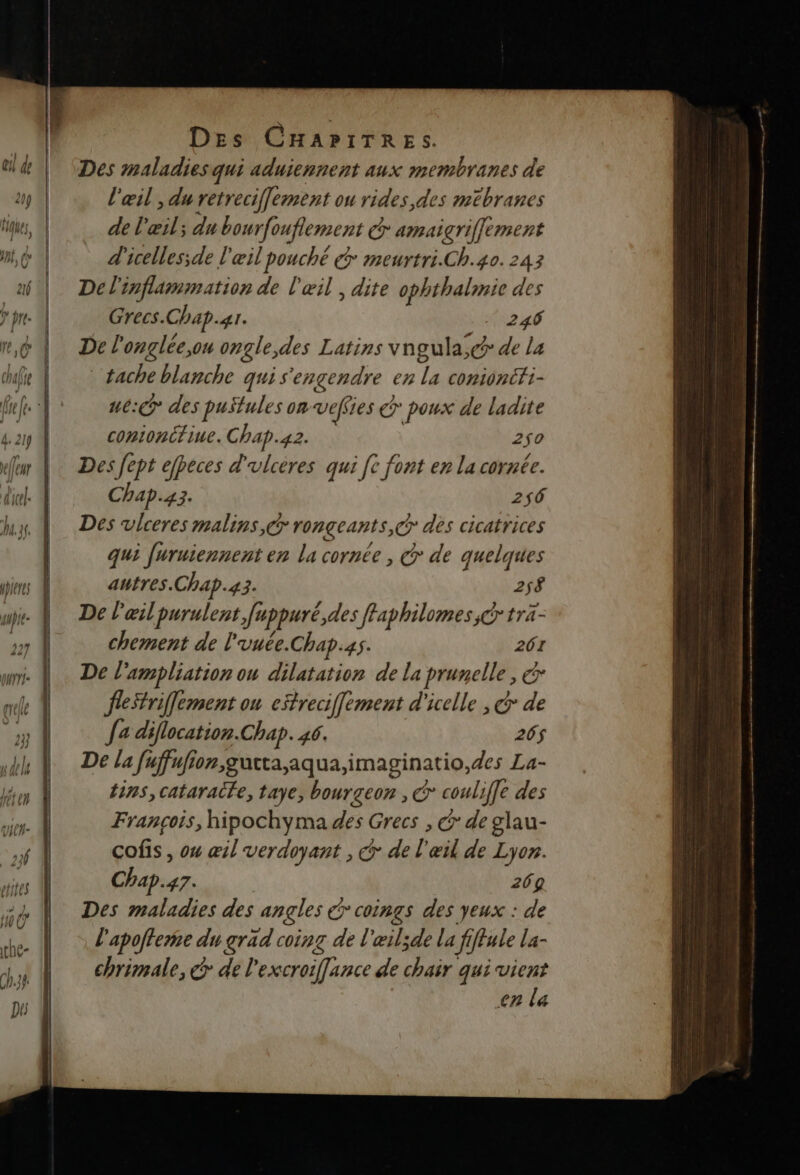 DES CHAPITRES.
Des maladies qui aduiennent aux membranes de
l'œil, du retreciſſement ou rides, des mẽbranes
de l'œil; du bourſouflement & amaigriſſement
d'icelles; de l'œil pouché & meurtri. Ch. 40. 243
De l'inflammation de l'œil, dite ophthalmie des
Grecs. Chap. 41. 246
De l'onglée, ou ongle, des Latins vngula, & de la
tache blanche qui s'engendre en la conioncti-
ue: & des puſtules on veſſies & poux de ladite
conionctiue. Chap. 42. 250
Des ſept eſpeces d'vlceres qui ſe font en la cornée.
Chap. 43. 256
Des vlceres malins, & rongeants, & des cicatrices
qui ſuruiennent en la cornée, & de quelques
autres. Chap. 43. 258
De l'œil purulent, ſuppuré, des ſtaphilomes, & trã-
chement de l'vuée. Chap. 45. 261
De l'ampliation ou dilatation de la prunelle, &
fleſtriſſement ou eſtreciſſement d'icelle, & de
ſa diſlocation. Chap. 46. 265
De la ſuffuſion, gutta, aqua, imaginatio, des La-
tins, cataracte, taye, bourgeon, & couliſſe des
François, hipochyma des Grecs, & de glau-
coſis, ou œil verdoyant, & de l'œil de Lyon.
Chap. 47. 269
Des maladies des angles & coings des yeux: de
l'apoſteme du grãd coing de l'œil; de la fiſtule la-
chrimale, & de l'excroiſſance de chair qui vient
en la